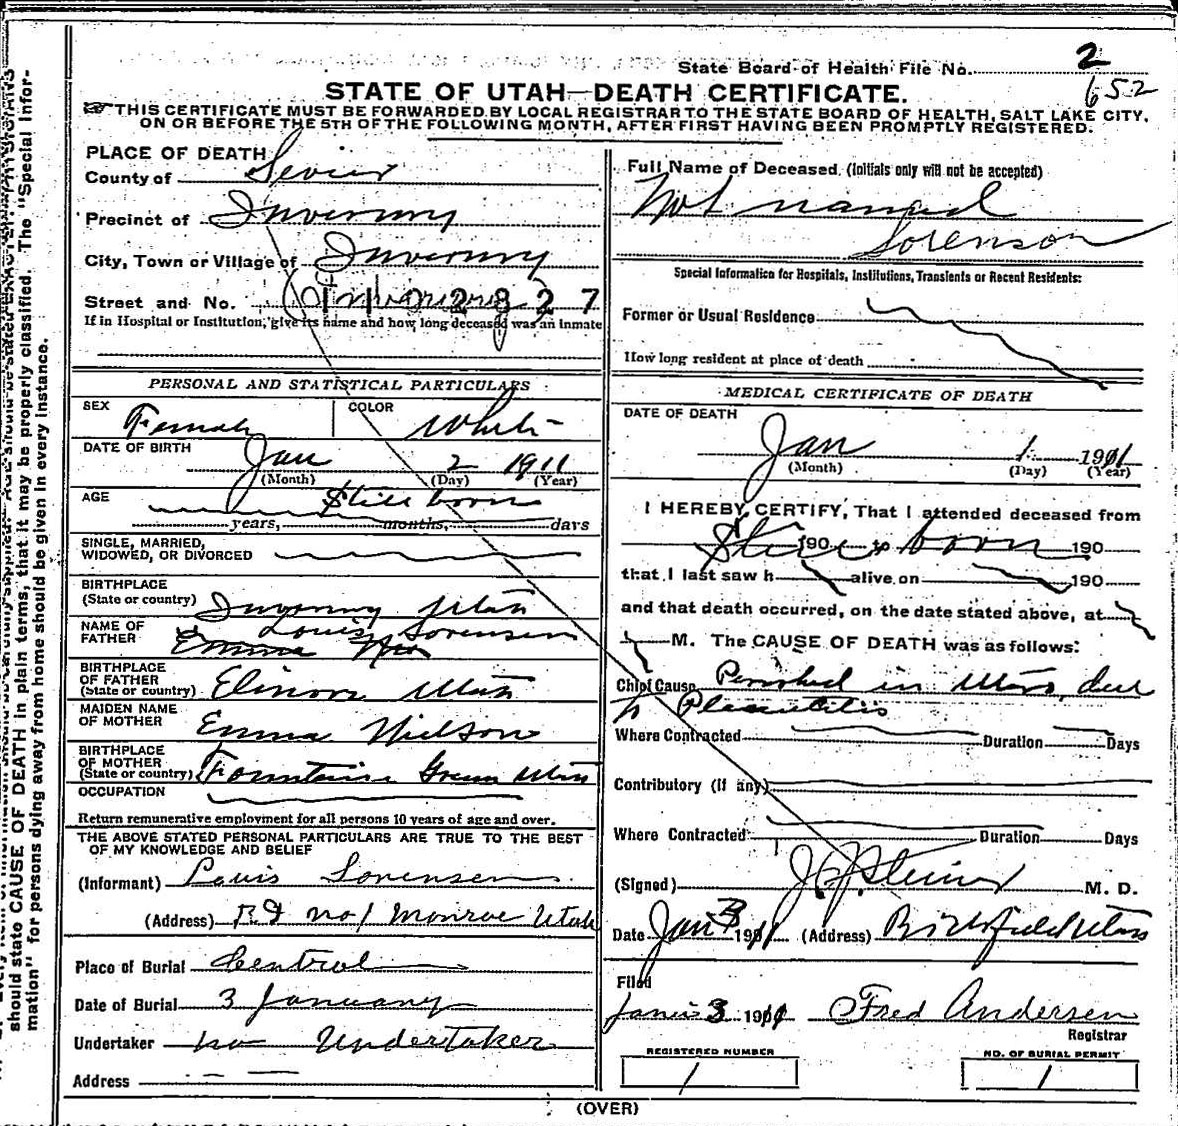 State Board of Health File No. 2
652
STATE OF UTAH—DEATH CERTIFICATE.
THIS CERTIFICATE MUST BE FORWARDED BY LOCAL REGISTRAR TO THE STATE BOARD OF HEALTH, SALT LAKE CITY,
ON OR BEFORE THE 5TH OF THE FOLLOWING MONTH, AFTER FIRST HAVING BEEN PROMPTLY REGISTERED.
PLACE OF DEATH
County of Sevier
Precinct of Inverury
City, Town or Village of Inverury
Street and No.
If in Hospital or Institution, give its name and how long deceased was an inmate
PERSONAL AND STATISTICAL PARTICULARS
SEX Female COLOR White
DATE OF BIRTH
Jan 2 1911
(Month) (Day) (Year)
AGE Still born
years, months, days
SINGLE, MARRIED,
WIDOWED, OR DIVORCED
BIRTHPLACE
(State or country) Inverury Utah
NAME OF
FATHER Louis Sorensen
BIRTHPLACE
OF FATHER
(State or country) Elinore Utah
MAIDEN NAME
OF MOTHER Emma Nielson
BIRTHPLACE
OF MOTHER
(State or country) Fountain Green Utah
OCCUPATION
Return remunerative employment for all persons 10 years of age and over.
THE ABOVE STATED PERSONAL PARTICULARS ARE TRUE TO THE BEST
OF MY KNOWLEDGE AND BELIEF
(Informant) Louis Sorensen
(Address) R D no 1 Monroe Utah
Place of Burial Central
Date of Burial 3 January
Undertaker no Undertaker
Address
Full Name of Deceased (Initials only will not be accepted)
Not named
Sorenson
Special Information for Hospitals, Institutions, Transients or Recent Residents:
Former or Usual Residence
How long resident at place of death
MEDICAL CERTIFICATE OF DEATH
DATE OF DEATH
Jan 1 1911
(Month) (Day) (Year)
I HEREBY CERTIFY, That I attended deceased from
Still 190 to born 190
that I last saw h alive on 190
and that death occurred, on the date stated above, at
M. The CAUSE OF DEATH was as follows:
Chief Cause Perished in Utero, due
to Placentitis
Where Contracted Duration Days
Contributory (If any)
Where Contracted Duration Days
(Signed) M. D.
Date Jan 3 1911 (Address) Richfield Utah
Filed
3 1911 Fred Andersen
Registrar
REGISTERED NUMBER
1
NO. OF BURIAL PERMIT
1
(OVER)
should state CAUSE OF DEATH in plain terms, that it may be properly classified. The "Special Infor-
mation" for persons dying away from home should be given in every instance.